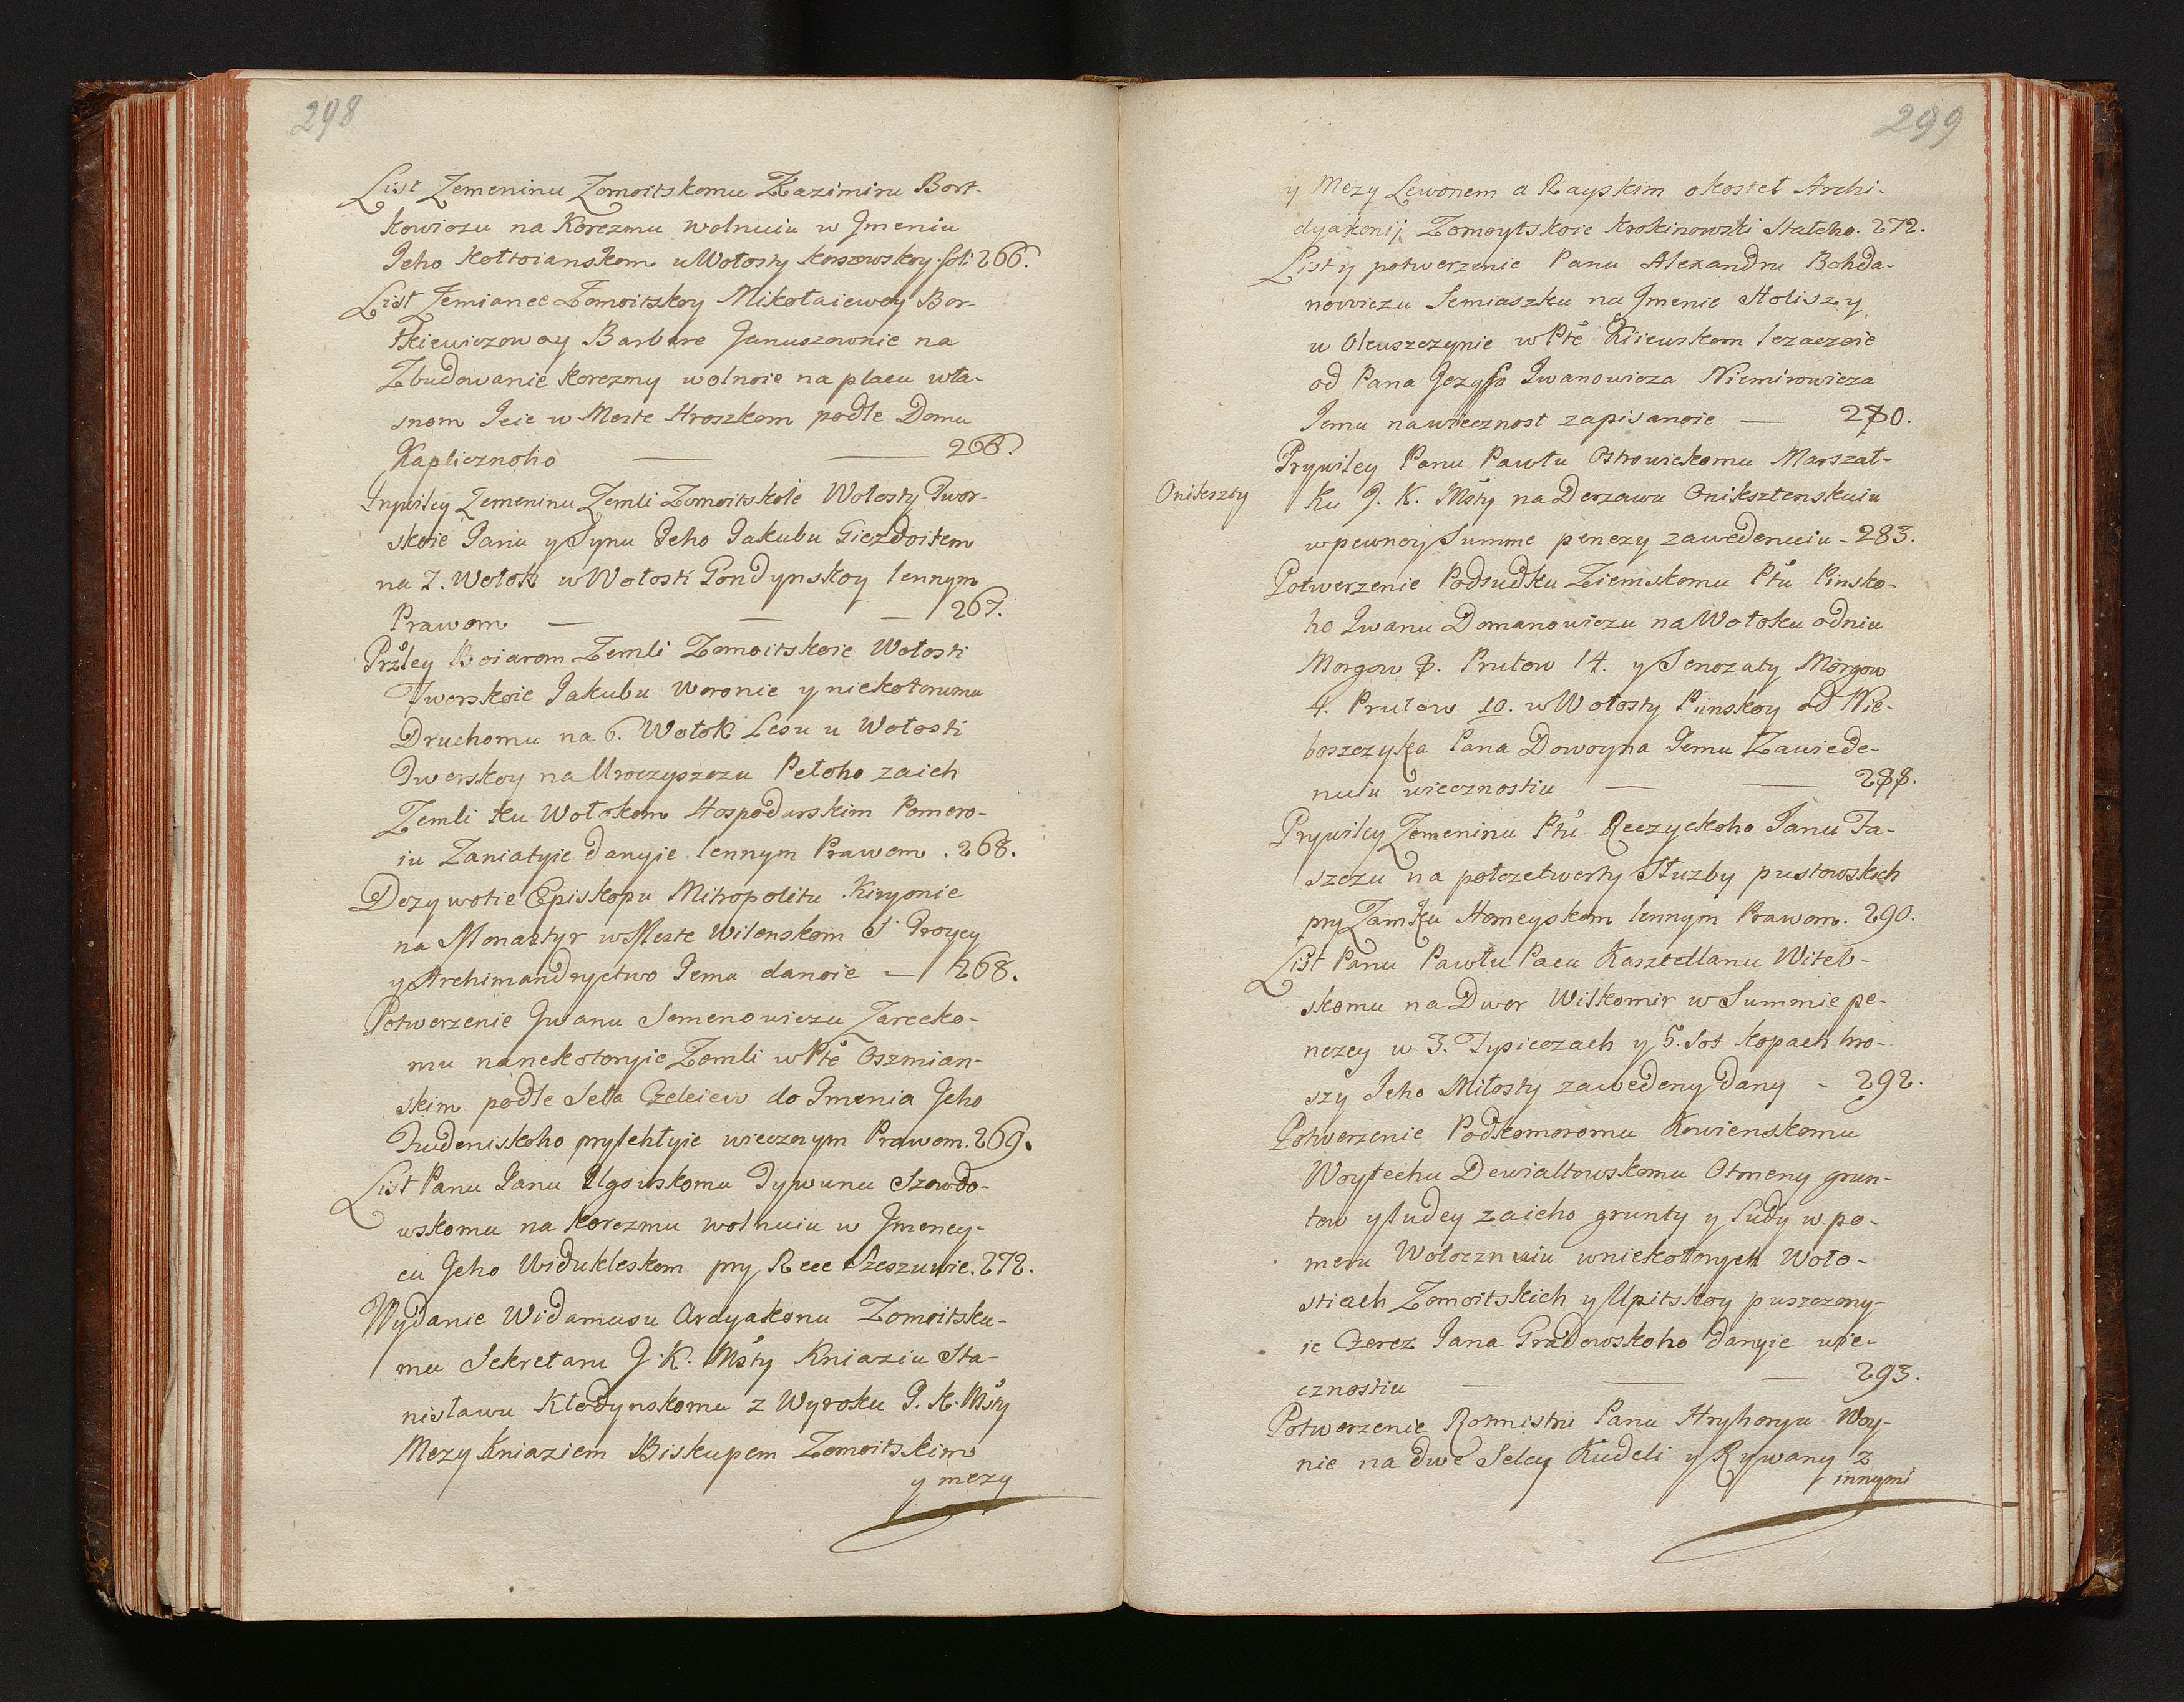 298
List Zemeninu Zomoitskomu Kazimiru Bort-
kowiczu na Korczmu wolnuiu w Jmeniu
Jeho Kołtoianskom u Wołosty Korszowskoy. fol: 266.
List Zemiance Zomoitskoy Mikołaiewoy Bor-
tkiewiczowoy Barbare Januszownie na
Zbudowanie Korczmy wolnoie na placu wła-
snom Jeie w Meste Kroszkom podle Domu
Kaplicznoho — — 266.
Prywiley Zemeninu Zemli Zomoitskoie Wołosty Twer-
skoie Janu y Synu Jeho Jakubu Giezdoitem
na 7. Wołok w Wołosti Gondynskoy lennym
Prawom — — — 267.
Przley Boiarom Zemli Zomoitskoie Wołosti
Twerskoie Jakubu Woronie y niekotorumu
Druchomu na 6. Wołok Lesu u Wołosti
Twerskoy na Uroczyszczu Pełoho zaich
Zemli ku Wołokom Hospodarskim Pomero-
iu Zaniatyie danyie lennym Prawom . 268.
Dozywotie Episkopu Mitropolitu Kiryonie
na Monastyr w Meste Wilenskom S. Troycy
y Archimandryctwo Jemu danoie — 268.
Potwerzenie Jwanu Semenowiczu Zarecko-
mu na nekotoryie Zemli w Pte Oszmian-
skim podle Seła Czeleiew do Jmenia Jeho
Trudeniskoho prylehłyie wiecznym Prawom. 269.
List Panu Janu Ilgowskomu Tywunu Szowdo-
wskomu na Korczmu wolnuiu w Jmeney-
cu Jeho Widukleskom pry Rece Szeszuwie. 272.
Wydanie Widamusu Ardyakonu Zomoitsku-
mu Sekretaru J. K. Msty Kniaziu Sta-
nisławu Kłodynskomu z Wyroku J. K. Msty
Mezy Kniaziem Biskupem Zomoitskim
y mezy
299
y Mezy Lewonem a Rayskim o kosteł Archi-
dyakonij Zomoytskoie Krokinowski Stałcho. 272.
List y potwerzenie Panu Alexandru Bohda-
nowiczu Semiaszku na Jmenie Holiszy
u Oleuszczynie w Pte Kijewskom lezaczoie
od Pana Jozyfo Jwanowicza Niemirowicza
Jemu na wiecznost zapisanoie — 280.
Prywiley Panu Pawłu Ostrowickomu Marszał-
Onikszty
ku J. K. Msty na Derzawu Oniksztenskuiu
w pewnoy Summe penezy zawedenuiu - 283.
Potwerzenie Podsudku Ziemskomu Ptu Pinsko-
ho Jwanu Domanowiczu na Wołoku odniu
Morgow 8. Prutow 14. y Senozaty Morgow
4. Prutow 10. w Wołosty Pinskoy od Nie-
boszczyka Pana Dowoyna Jemu Zawiede-
nuiu wiecznostiu — — 288.
Prywiley Zemeninu Ptu Reczyckoho Janu Ja-
szczu na połczetwerty Słuzby pustowskich
pry Zamku Homeyskom lennym Prawom. 290.
List Panu Pawłu Pacu Kasztellanu Witeb-
skomu na Dwor Wiłkomir w Summie pe-
nezey w 3. Tysieczach y 5. Sot kopach hro-
szy Jeho Miłosty zawedeny dany - 292.
Potwerzenie Podkomoromu Kowienskomu
Woytechu Dewialtowskomu Otmeny grun-
tow y ludey za ieho grunty y ludy w po-
meru Wołocznuiu w niekotorych Woło-
stiach Zomoitskich y Upitskoy puszczony-
ie Czerez Jana Gradowskoho danyie wie-
cznostiu — — — 293.
Potwerzenie Rotmistru Panu Hryhoryu Woy-
nie na dwe Selcy Kudeli y Rywany z
innymi